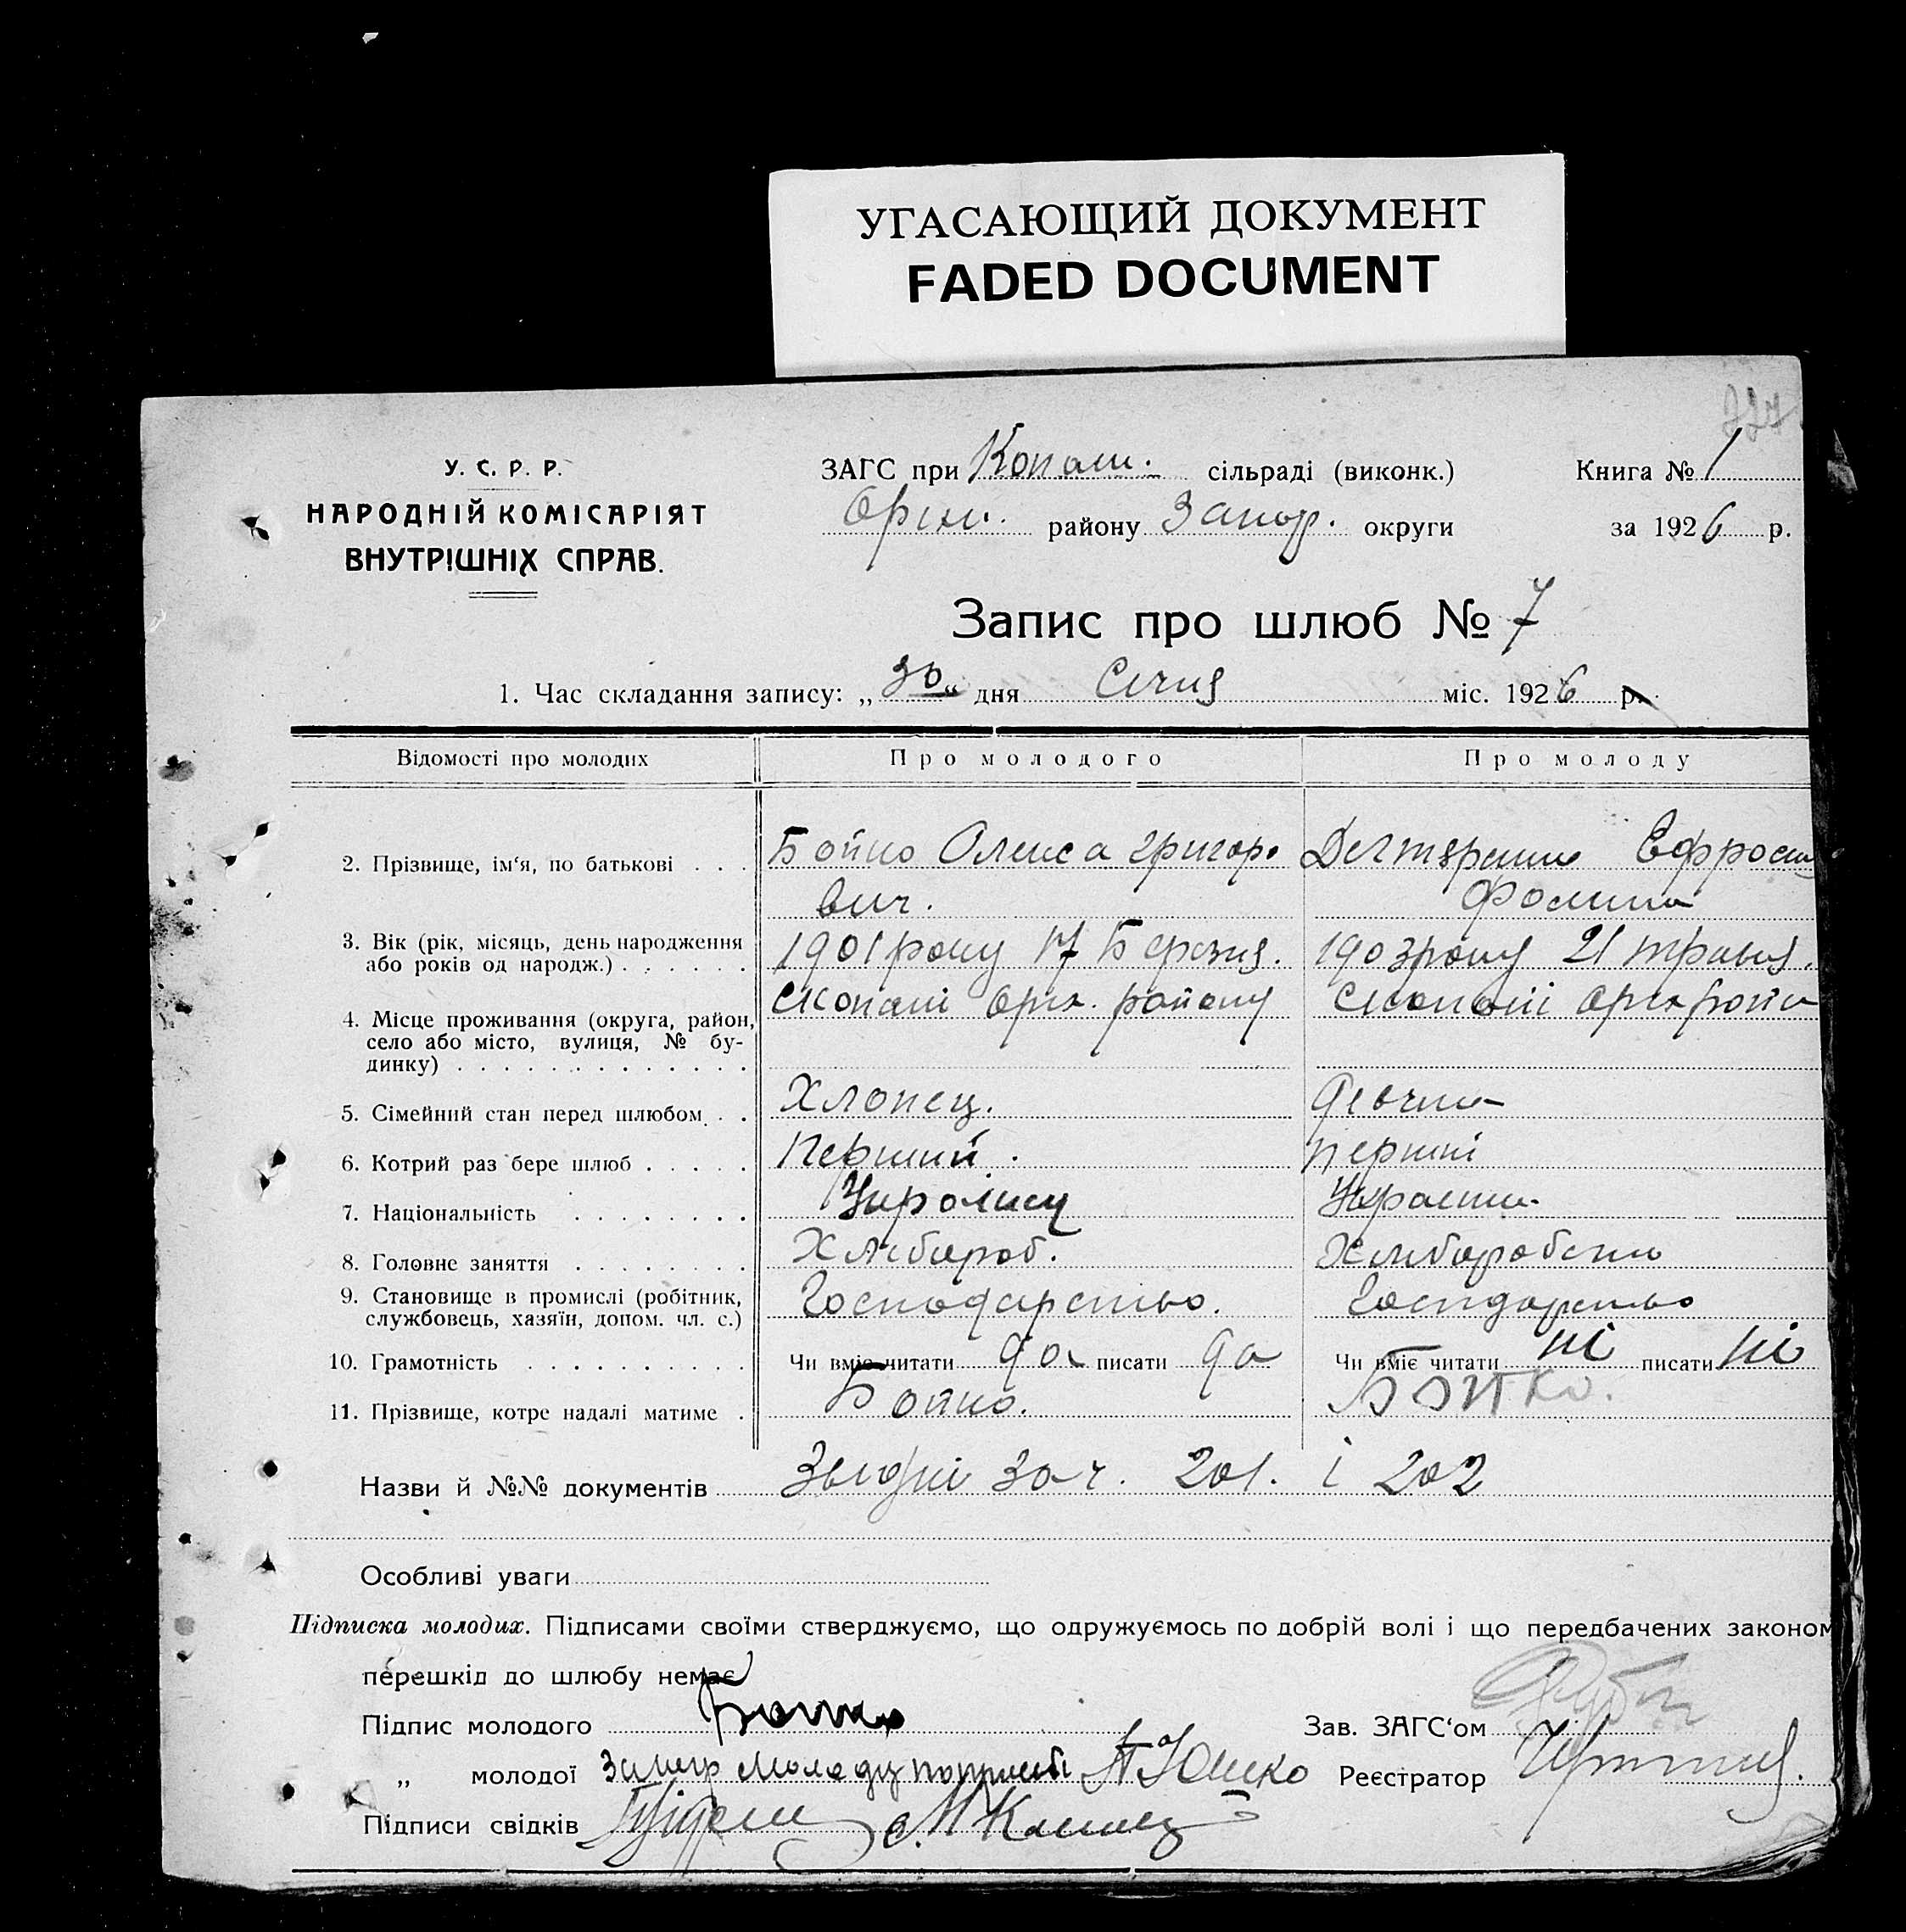 УГАСАЮЩИЙ ДОКУМЕНТ
FADED DOCUMENT
У. С. Р. Р.
НАРОДНІЙ КОМІСАРІЯТ
ВНУТРІШНІХ СПРАВ.
ЗАГС при Копан. сільраді (виконк.)
Оріхи. району Запор. округи
Книга № 1
за 1926 р.
Запис про шлюб № 7
1. Час складання запису: „30“ дня Січня міс. 1926 р.
Відомості про молодих Про молодого Про молоду
2. Прізвище, ім‘я, по батькові . . . Бойко Олекса Григор. Ефросин
вич. Фомина
3. Вік (рік, місяць, день народження
або років од народж.) . . . . . . 1901 року 17 Березня. 1903 року 21 травня.
4. Місце проживання (округа, район,
село або місто, вулиця, № бу-
динку) . . . . . . . . . . . . . с Копані Оріх. району с Копані Оріх райо
5. Сімейний стан перед шлюбом . . Хлопец. Девчина
6. Котрий раз бере шлюб . . . . . Перший. перший
7. Національність . . . . . . . . Україниц Украінка
8. Головне заняття . . . . . . . . Хлібароб. Хлиборобство
9. Становище в промислі (робітник,
службовець, хазяїн, допом. чл. с.) Господарство. Госпдарство
10. Грамотність . . . . . . . . . . Чи вміє читати да писати да Чи вміє читати ні писати ні
11. Прізвище, котре надалі матиме . Бойко. Бойко.
Назви й №№ документів 201. і 202
Особливі уваги
Підписка молодих. Підписами своїми стверджуємо, що одружуємось по добрій волі і що передбачених законом
перешкід до шлюбу немає
Підпис молодого Бойко Зав. ЗАГС‘ом
„ молодої Реєстратор
Підписи свідків